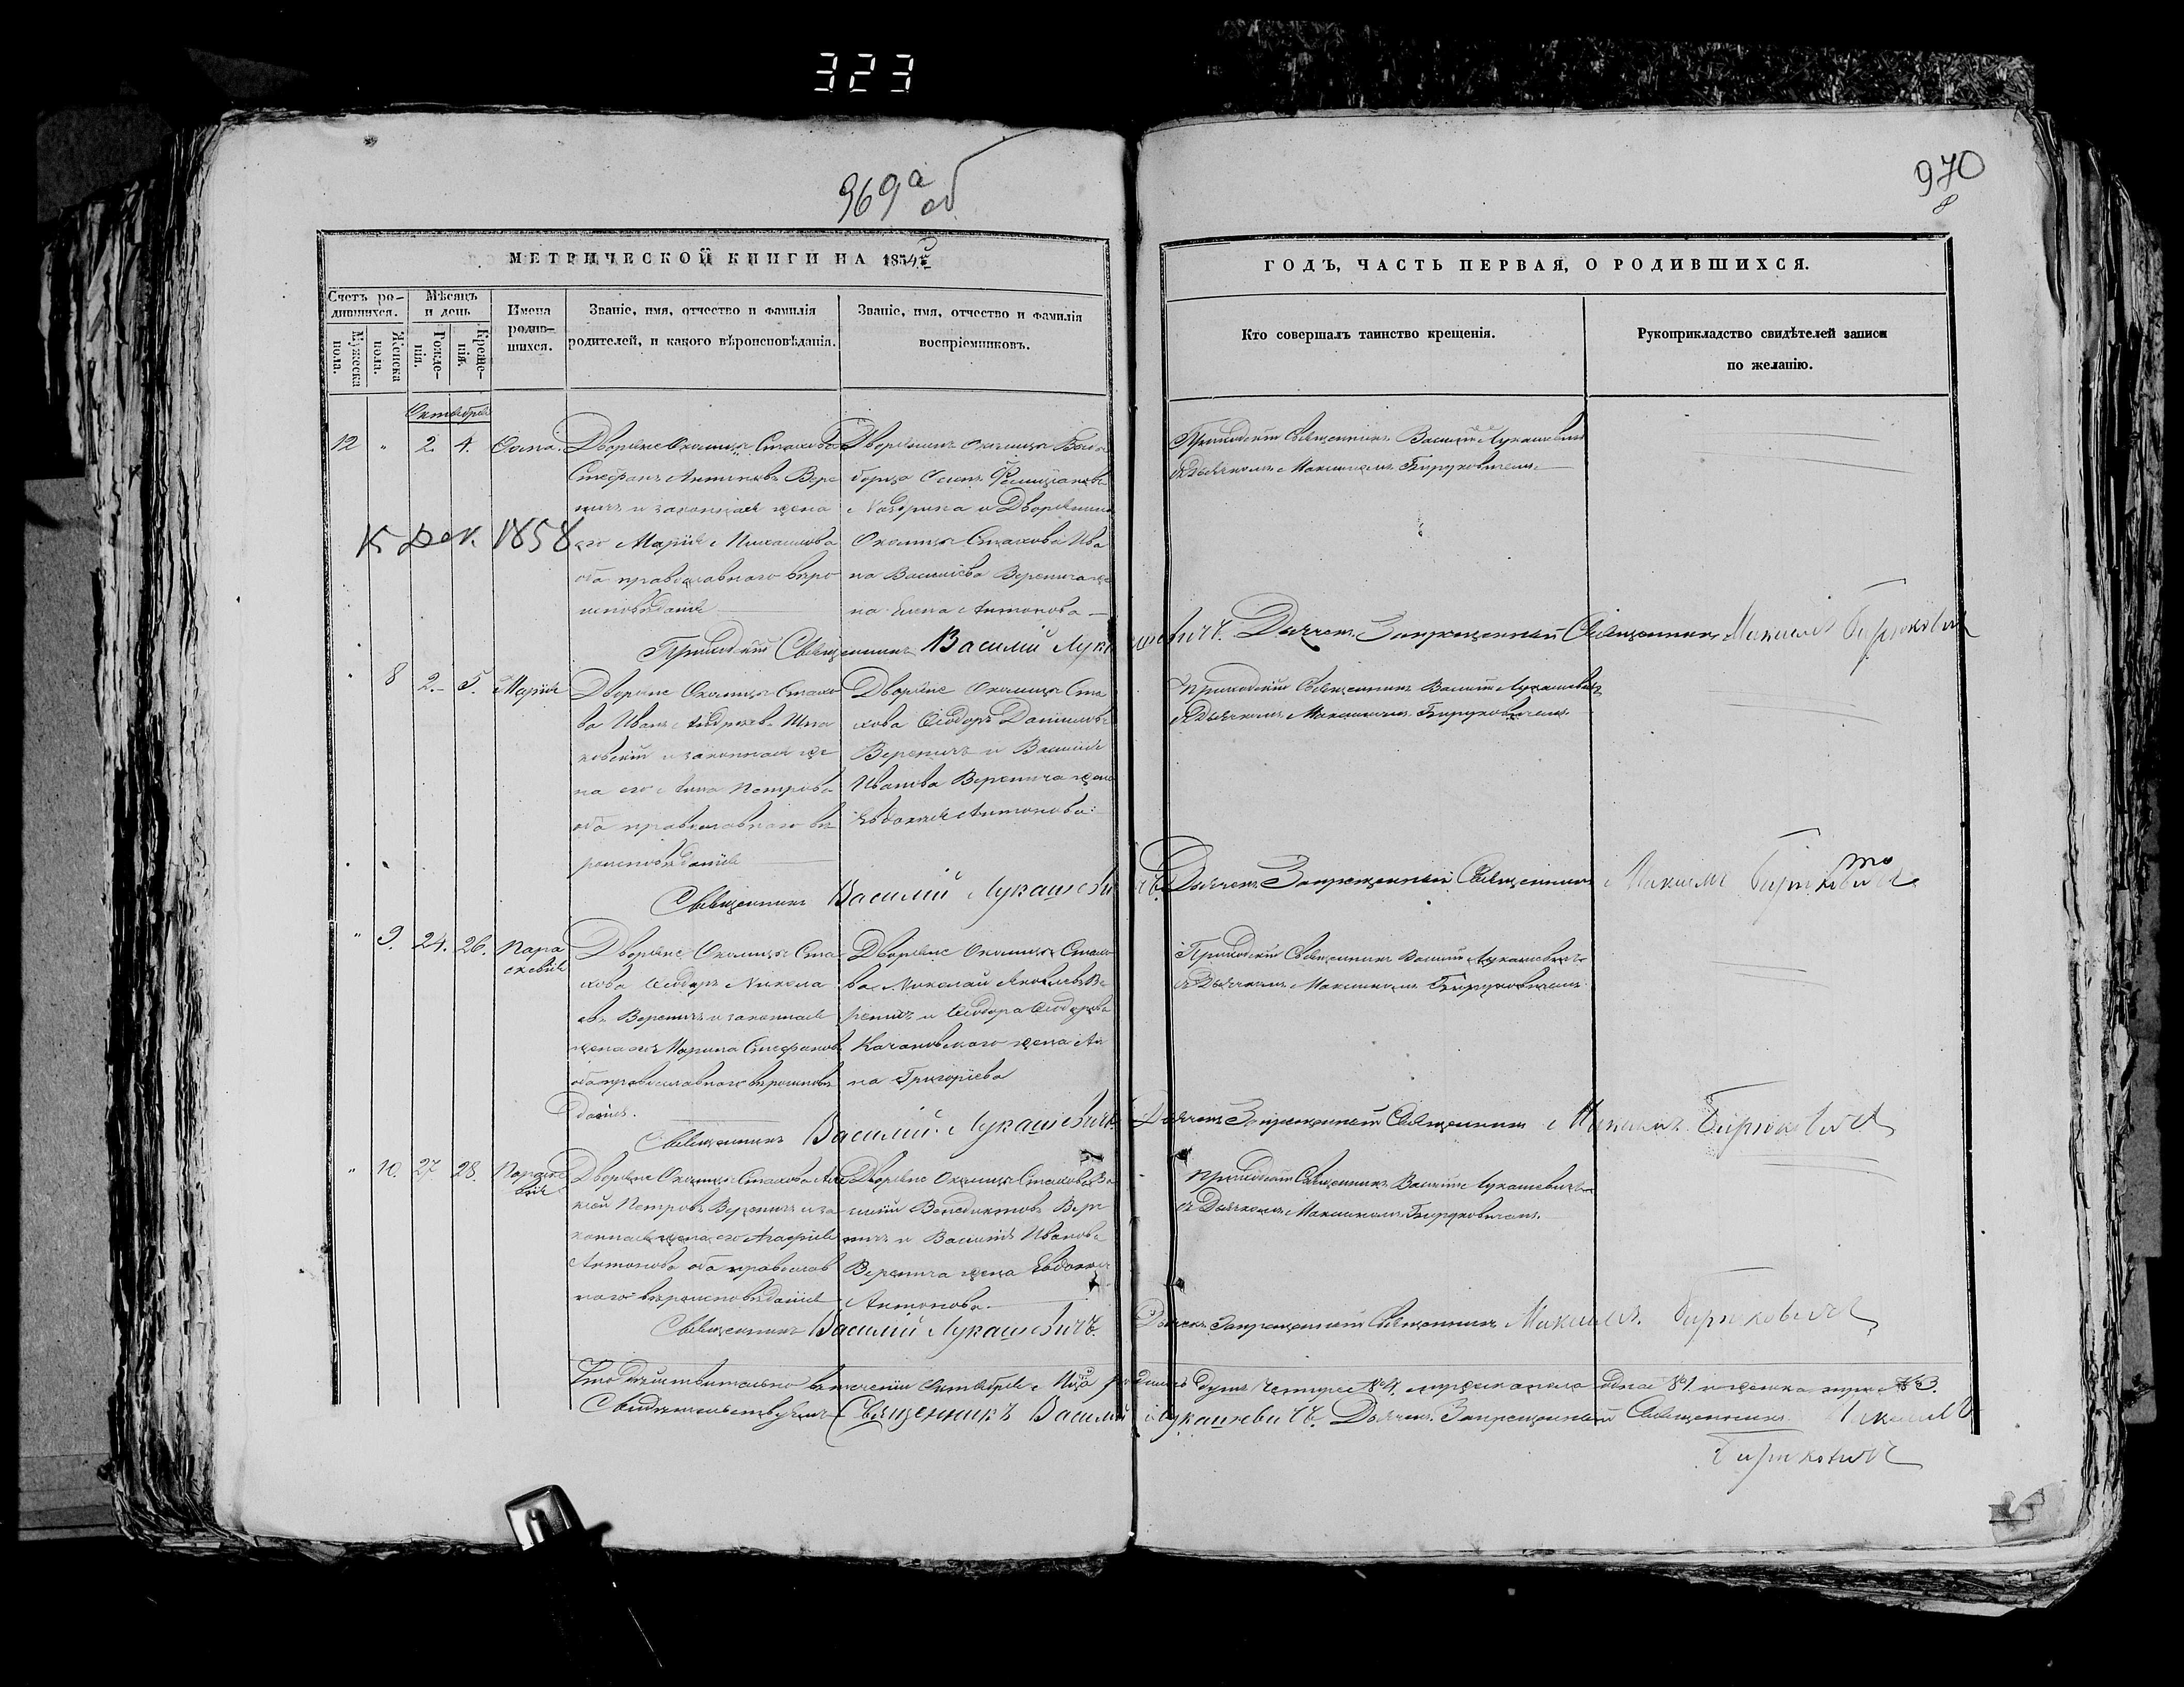 323
969 а об
970
8
МЕТРИЧЕСКОЙ КНИГИ НА 1854й
ГОДЪ, ЧАСТЬ ПЕРВАЯ, О РОДИВШИХСЯ.
Счетъ ро-
дившихся.
Мужеска
пола.
Женска
пола.
Мѣсяцъ
и день
Рожде-
нія.
Креще-
нія.
Имена
родив-
шихся.
Званіе, имя, отчество и фамилія
родителей, и какого вѣроисповѣданія.
Званіе, имя, отчество и фамилія
воспріемниковъ.
Кто совершалъ таинство крещенія.
Рукоприкладство свидѣтелей записи
по желанію.
Октября
12 " 2. 4. Фома.
Дворяне Околицы Стахова
Стефанъ Антоновъ Вере
ничъ и законная жена
его Марія Михаилова
оба православнаго вѣро
исповѣданія
Дворянинъ Околицы
Осипъ
и Дворянина
Околицы Стахова Ива
на Василіева Веренича же
на Елена Антонова
Приходскій Священникъ Василій Лукашевичъ
съ Дьячкомъ Максимомъ Бирюковичемъ
К рек. 1858
Приходскій Священникъ Василій Лукашевичъ. Дьячекъ Запрещенный Священникъ Максимъ Бирюковичъ
" 8 2. 5. Марія
Дворяне Околицы Стахо
ва Иванъ Андреевъ Шпа
ковскій и законная же
на его Анна Петрова
оба православнаго вѣ
роисповѣданія
Дворяне Околицы Ста
хова Ѳеодоръ Даніиловъ
Вереничъ и Василія
Иванова Веренича жена
Евдокія Антонова
Приходскій Священникъ Василій Лукашевичъ
съ Дьячкомъ Максимомъ Бирюковичемъ.
Священникъ Василій Лукашевичъ. Дьячекъ Запрещенный Священникъ Максимъ Бирюковичъ
" 9. 24. 26. Пара
скевія
Дворяне Околицы Ста
хова Ѳеодоръ Никола
евъ Вереничъ и законная
жена его Марина Стефанова
оба православнаго вѣроисповѣ
данія.
Дворяне Околицы Стахо
ва Николай Яковлевъ Ве
реничъ и Ѳеодора Ѳеодорова
Качановскаго жена Ан
на Григоріева
Приходскій Священникъ Василій Лукашевичъ
съ Дьячкомъ Максимомъ Бирюковичемъ
Священникъ Василій Лукашевичъ. Дьячекъ Запрещенный Священникъ Максимъ Бирюковичъ
" 10. 27. 28. Параске
вія
Дворяне Околицы Стахова Але
ксѣй Петровъ Вереничъ и за
конная жена его Агафія
Антонова оба православ
наго вѣроисповѣданія
Дворяне Околицы Стахова Ва
силій Венедиктовъ Вере
ничъ и Василія Иванова
Веренича жена Евдокія
Антонова.
Приходскій Священникъ Василій Лукашевичъ
съ Дьячкомъ Максимомъ Бирюковичемъ.
Священникъ Василій Лукашевичъ. Дьячекъ Запрещенный Священникъ Максимъ Бирюковичъ
Что дѣйствительно въ теченіи Октября Мца родилось душъ четыре №4. мужеска пола одна №1. и женска три №3.
Свидѣтельствуемъ Священникъ Василій Лукашевичъ. Дьячекъ Запрещенный Священникъ Максимъ
Бирюковичъ